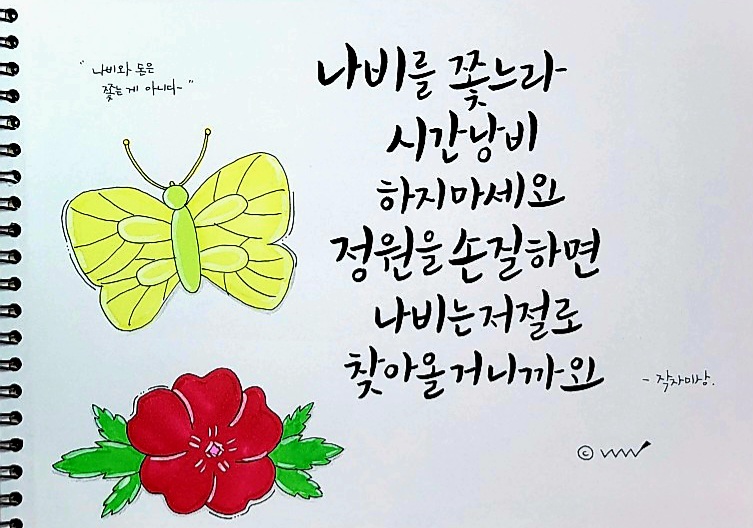 "나비와 돈은
쫓는 게 아니다~"
나비를 쫓느라
시간낭비
하지마세요
정원을 손질하면
나비는 저절로
찾아올거니까요
- 작자미상.